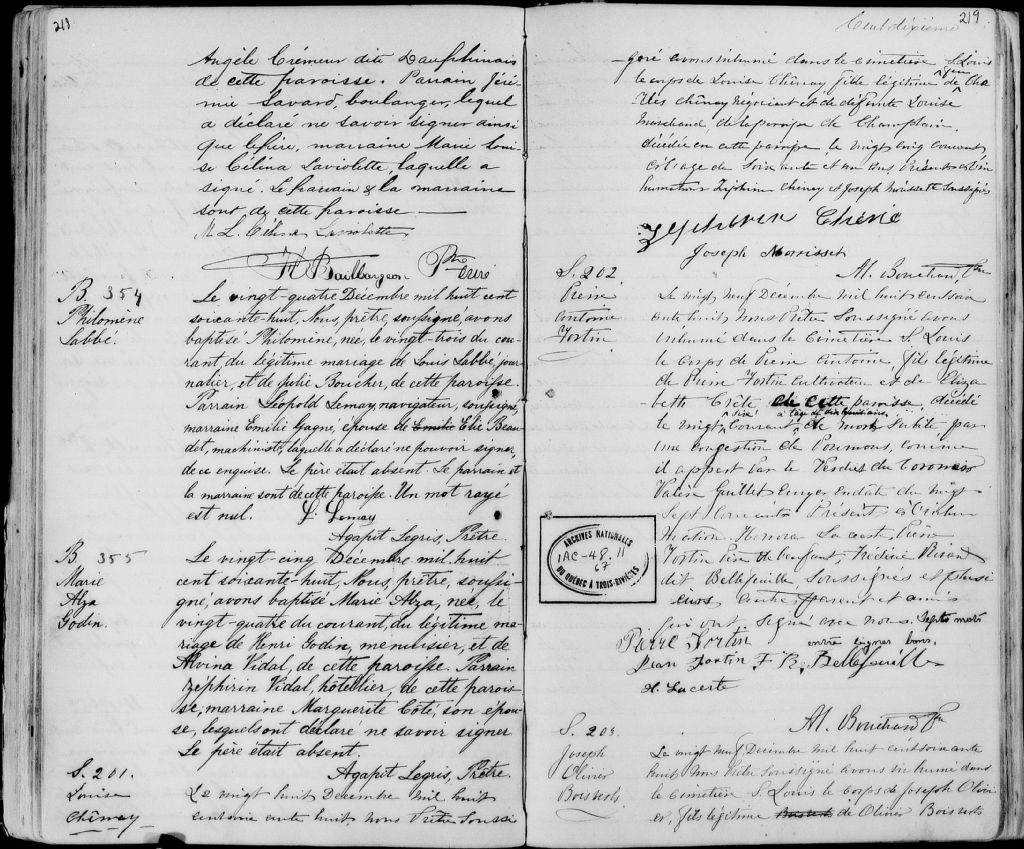 213
Angèle Crémeur dite Dauphinais
de cette paroisse. Parrain Jéré-
mie Savard, boulanger, lequel
a déclaré ne savoir signer ainsi
que le père, marraine Marie Loui-
se Célina Laviolette, laquelle a
signé. Le parrain & la marraine
sont de cette paroisse.
M. L. Célina Laviolette
F. Baillargeon Ptre Curé
B. 354
Philomène
Labbé.
Le vingt-quatre Décembre mil huit cent
soixante-huit, Nous, prêtre, soussigné, avons
baptisé Philomène, née, le vingt-trois du cou-
rant, du légitime mariage de Louis Labbé, jour-
nalier, et de Julie Boucher, de cette paroisse.
Parrain Léopold Lemay, navigateur, soussigné,
marraine Emilie Gagné, épouse de Emilie Elie Beau-
det, machiniste, laquelle a déclaré ne pouvoir signer,
de ce enquise. Le père était absent. Le parrain et
la marraine sont de cette paroisse. Un mot rayé
est nul. L. Lemay
Agapit Legris, Prêtre
B 355
Marie
Alza
Godin.
Le vingt-cinq Décembre mil huit
cent soixante-huit, Nous, prêtre, soussi-
gné, avons baptisé Marie Alza, née, le
vingt-quatre du courant, du légitime ma-
riage de Henri Godin, menuisier, et de
Alvina Vidal, de cette paroisse. Parrain
Zéphirin Vidal, hôtellier, de cette parois-
se, marraine Marguerite Côté, son épou-
se, lesquels ont déclaré ne savoir signer
Le père était absent.
Agapit Legris, Prêtre.
S. 201.
Louise
Chênay
Le vingt huit Décembre mil huit
cent soixante huit, nous Prêtre Soussi
219
Cent dixième
-gné avons inhumé dans le cimetière S. Louis
le corps de Louise Chênay, fille légitime de Cha
rles Chênay Négociant et de défunte Louise
Marchand, de la paroisse de Champlain,
décédée en cette paroisse le vingt cinq courant,
à l'age de Soixante et un ans Présents à l'in
humation Zéphirin Chênay et Joseph Morissette Soussignés
Zephirin Chéné
Joseph Morrisset
M. Bouchard, Ptre
S. 202
Pierre
Antoine
Fortin
Le vingt neuf Décembre mil huit cent soix
ante huit nous Prêtre Soussigné avons
inhumé dans le Cimetière S. Louis
le corps de Pierre Antoine, fils légitime
de Pierre Fortin Cultivateur et de Eliza
beth Crête de cette paroisse, décédé
à l'age de dix huit ans
le vingt courant, de mort Subite par
une congestion de Poumons, comme
il appert par le Verdict du Coroner
Valère Guillet Ecuyer, en date du vingt
Sept Courant. Présent à l'inhu
mation. Honoré Lacerte, Pierre
Fortin Père de l'enfant, Frédéric Rivard
dit Bellefeuille Soussignés et plusi
eurs autres parent et amis
qui ont signé avec nous. Septs mots
entre lignes bons.
Pierre Fortin
Jean Fortin F. R. Bellefeuille
H. Lacerte
M. Bouchard Ptre
S. 203.
Joseph
Olivier
Boisverts
Le vingt neuf Décembre mil huit cent soixante
huit, nous Prêtre Soussigné avons inhumé dans
le Cimetière S. Louis le corps de Joseph Olivi
er, fils légitime de Olivier Boisverts
ARCHIVES NATIONALES
1AC-48.11
67
DU QUÉBEC À TROIS-RIVIÈRES